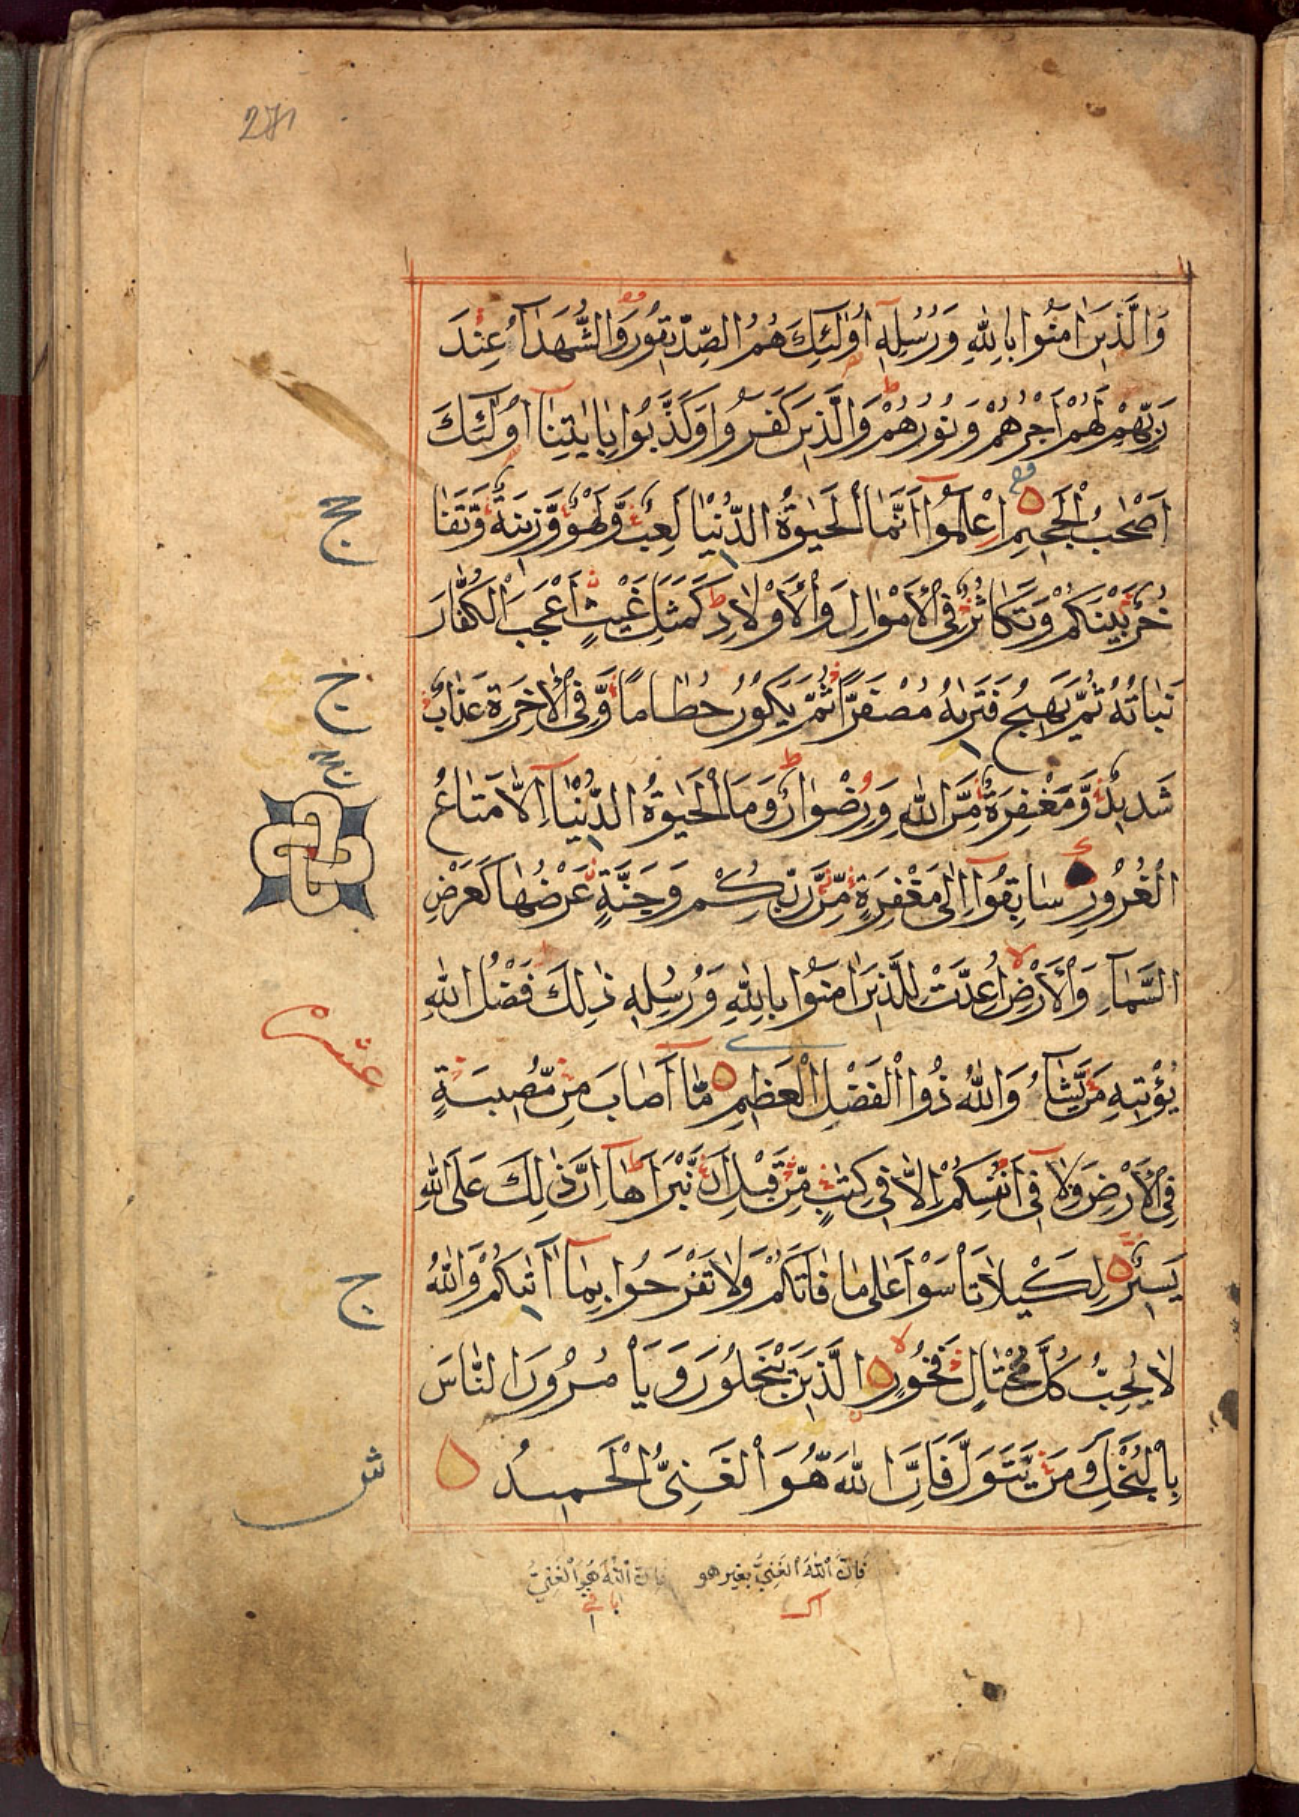 271
وَالَّذِينَ اٰمَنُوا بِاللّٰهِ وَرُسُلِهِ اُولٰئِكَ هُمُ الصِّدِّيقُونَ وَالشُّهَدَاۤءُ عِنْدَ
رَبِّهِمْ لَهُمْ اَجْرُهُمْ وَنُورُهُمْ وَالَّذِينَ كَفَرُوا وَكَذَّبُوا بِاٰيٰتِنَا اُولٰئِكَ
اَصْحٰبُ الْجَحِيمِ اِعْلَمُوا اَنَّمَا الْحَيٰوةُ الدُّنْيَا لَعِبٌ وَّلَهْوٌ وَّزِينَةٌ وَّتَفَا
خُرٌ بَيْنَكُمْ وَتَكَاثُرٌ فِى الْاَمْوَالِ وَالْاَوْلَادِ كَمَثَلِ غَيْثٍ اَعْجَبَ الْكُفَّارَ
نَبَاتُهُ ثُمَّ يَهِيجُ فَتَرٰىهُ مُصْفَرًّا ثُمَّ يَكُونُ حُطَامًا وَّفِى الْاٰخِرَةِ عَذَابٌ
شَدِيدٌ وَّمَغْفِرَةٌ مِّنَ اللّٰهِ وَرِضْوَانٌ وَمَا الْحَيٰوةُ الدُّنْيَا اِلَّا مَتَاعُ
الْغُرُورِ سَابِقُوا اِلٰى مَغْفِرَةٍ مِّنْ رَّبِّكُمْ وَجَنَّةٍ عَرْضُهَا كَعَرْضِ
السَّمَاۤءِ وَالْاَرْضِ اُعِدَّتْ لِلَّذِينَ اٰمَنُوا بِاللّٰهِ وَرُسُلِهِ ذٰلِكَ فَضْلُ اللّٰهِ
يُؤْتِيهِ مَنْ يَّشَاۤءُ وَاللّٰهُ ذُوا الْفَضْلِ الْعَظِيمِ مَّا اَصَابَ مِنْ مُّصِيبَةٍ
فِى الْاَرْضِ وَلَا فِى اَنْفُسِكُمْ اِلَّا فِى كِتٰبٍ مِّنْ قَبْلِ اَنْ نَّبْرَاَهَا اِنَّ ذٰلِكَ عَلَى اللّٰهِ
يَسِيرٌ لِكَيْلَا تَاْسَوْا عَلٰى مَا فَاتَكُمْ وَلَا تَفْرَحُوا بِمَا اٰتٰىكُمْ وَاللّٰهُ
لَا يُحِبُّ كُلَّ مُخْتَالٍ فَخُورٍ الَّذِينَ يَبْخَلُونَ وَيَاْمُرُونَ النَّاسَ
بِالْبُخْلِ وَمَنْ يَّتَوَلَّ فَاِنَّ اللّٰهَ هُوَ الْغَنِىُّ الْحَمِيدُ
ج
عشر
ج
ش
فَاِنَّ اللّٰهَ الْغَنِىُّ بغير هو
فَاِنَّ اللّٰهَ هُوَ الْغَنِىُّ
باقى